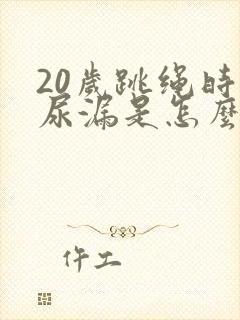 20歲跳绳時
尿漏是怎麼
仵工